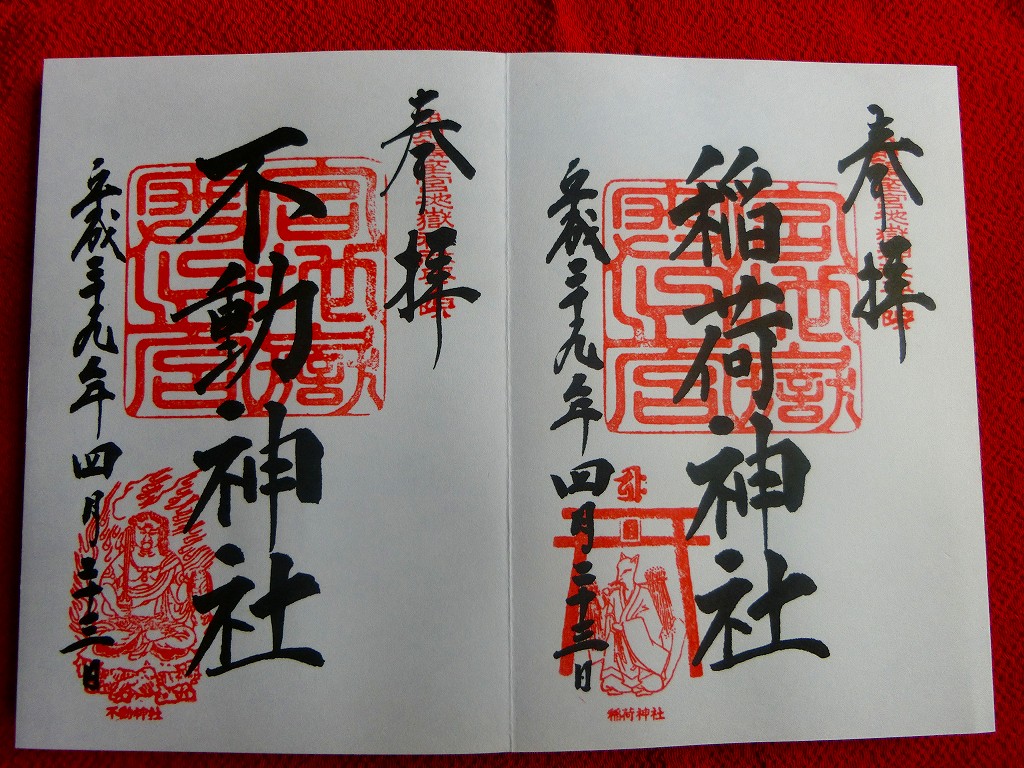 奉拝
稲荷神社
平成二十九年四月二十三日
稲荷神社
奉拝
不動神社
平成二十九年四月二十三日
不動神社